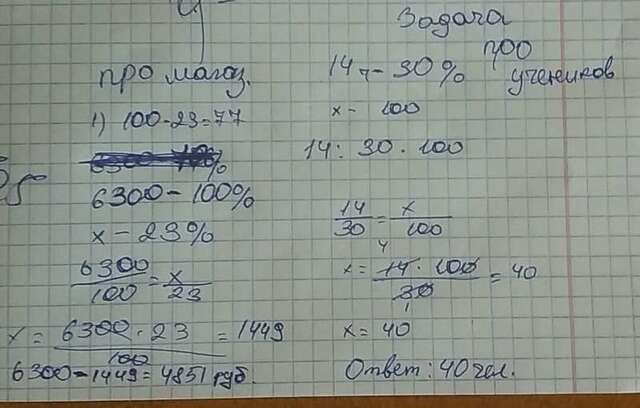 про магаз.
1) 100-23=77
6300 - 100%
x - 23%
6300/100 = x/23
x = 6300·23/100 = 1449
6300-1449=4851 руб.
Задача
про
учеников
14 - 30%
x - 100
14 : 30 · 100
14/30 = x/100
x = 14·100/30 = 40
x = 40
Ответ: 40 чел.